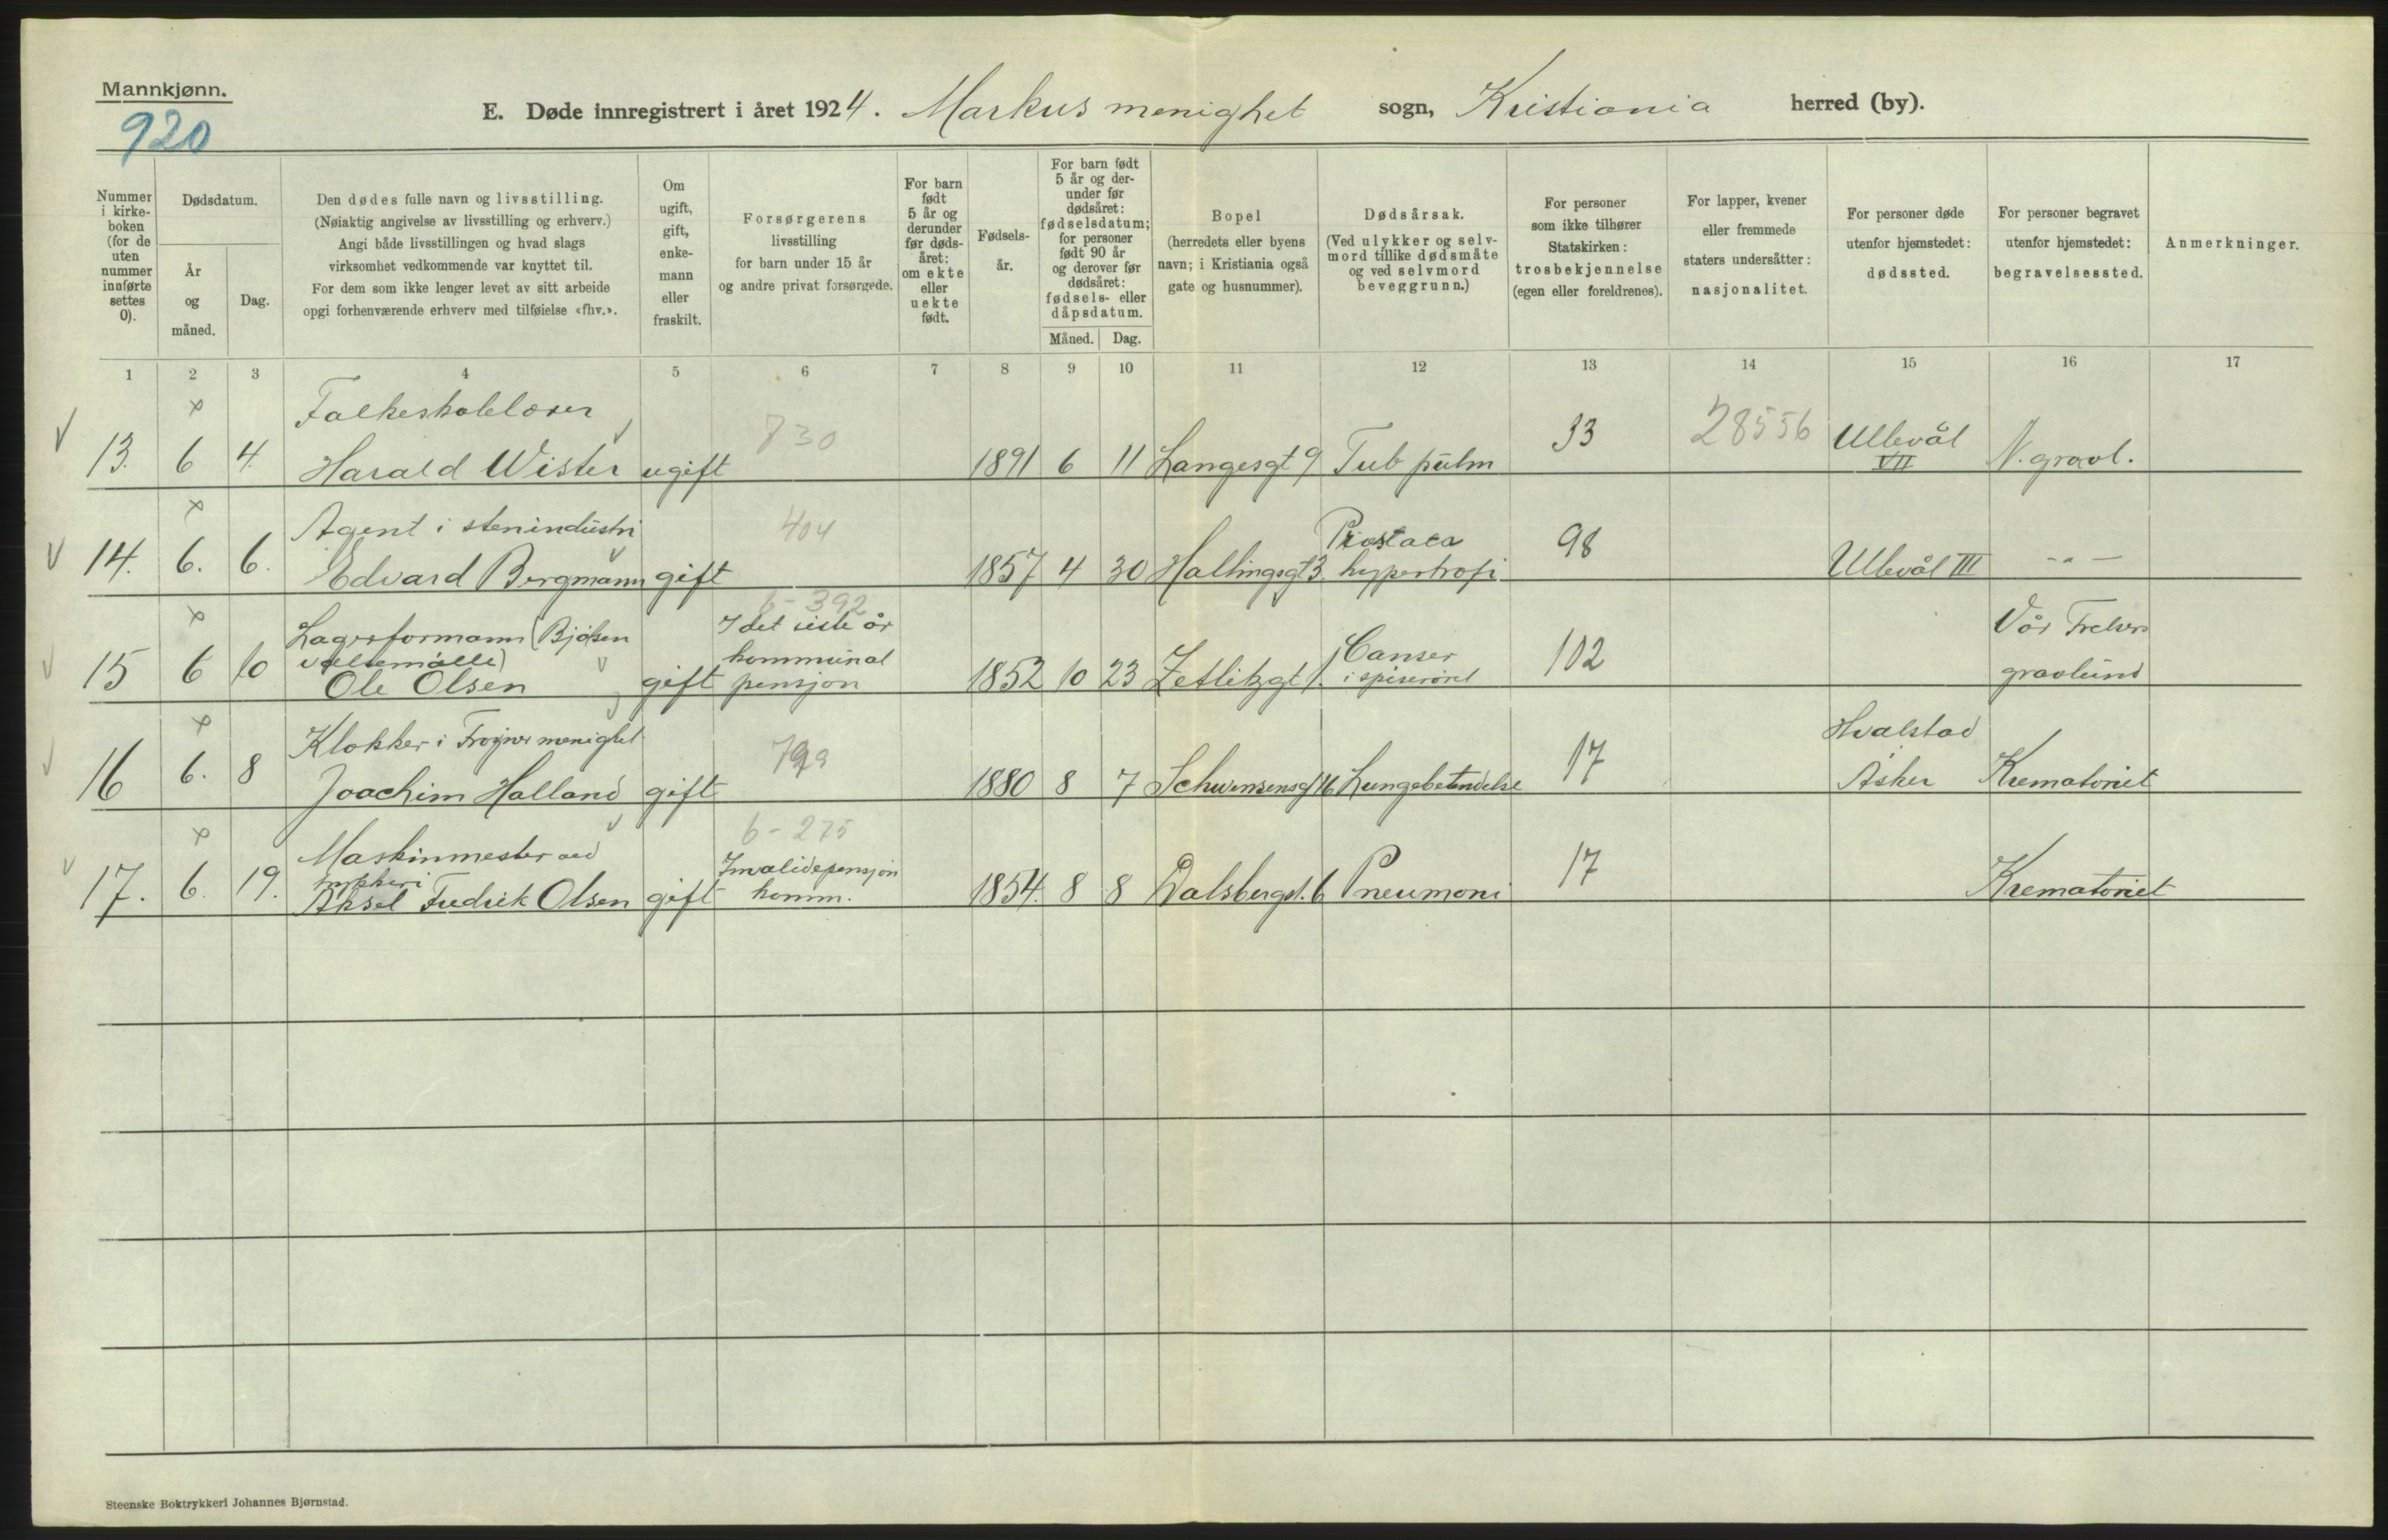 Mannkjønn.
920
E. Døde innregistrert i året 1924. Markus menighet sogn, Kristiania herred (by).
Nummer i kirke- boken (for de uten nummer innførte settes 0).
Dødsdatum.
År og måned.
Dag.
Den dødes fulle navn og livsstilling.
(Nøiaktig angivelse av livsstilling og erhverv.)
Angi både livsstillingen og hvad slags
virksomhet vedkommende var knyttet til.
For dem som ikke lenger levet av sitt arbeide
opgi forhenværende erhverv med tilføielse «fhv.».
Om ugift, gift, enke- mann eller fraskilt.
Forsørgerens
livsstilling
for barn under 15 år
og andre privat forsørgede.
For barn født 5 år og derunder før døds- året: om ekte eller uekte født.
Fødsels- år.
For barn født 5 år og der- under før dødsåret: fødselsdatum; for personer født 90 år og derover før dødsåret: fødsels- eller dåpsdatum.
Måned. Dag.
Bopel
(herredets eller byens
navn; i Kristiania også
gate og husnummer).
Dødsårsak.
(Ved ulykker og selv-
mord tillike dødsmåte
og ved selvmord
beveggrunn.)
For personer
som ikke tilhører
Statskirken:
trosbekjennelse
(egen eller foreldrenes).
For lapper, kvener
eller fremmede
staters undersåtter:
nasjonalitet.
For personer døde
utenfor hjemstedet:
dødssted.
For personer begravet
utenfor hjemstedet:
begravelsessted.
Anmerkninger.
1 2 3 4 5 6 7 8 9 10 11 12 13 14 15 16 17
x Folkeskolelærer
V 13. 6 4. Harald Wister ugift 830 1891 6 11 Langesgt 9 Tub pulm 33 28556 Ullevål VII N. gravl.
x Agent i stenindustri 404 Prostata
V 14. 6. 6. Edvard Bergmann gift 1857 4 30 Hallingsgt 3. hypertrofi 98 Ullevål III - " -
x Lagerformann (Bjølsen 6-392 I det siste år Vår Frelsers
valsemølle) kommunal Canser
V 15 6 10 Ole Olsen gift pensjon 1852 10 23 Zetlitzgt 1. i spiserøret 102 gravlund
x Klokker i Frogner menighet Hvalstad
V 16 6. 8 Joachim Halland gift 799 1880 8 7 Schwensensgt 16 Lungebetendelse 17 Asker Krematoriet
x Maskinmester ved 6-275 Invalidepensjon
V 17. 6. 19. Aksel Fredrik Olsen gift komm. 1854. 8 8 Dalsbergst. 6 Pneumoni 17 Krematoriet
Steenske Boktrykkeri Johannes Bjørnstad.